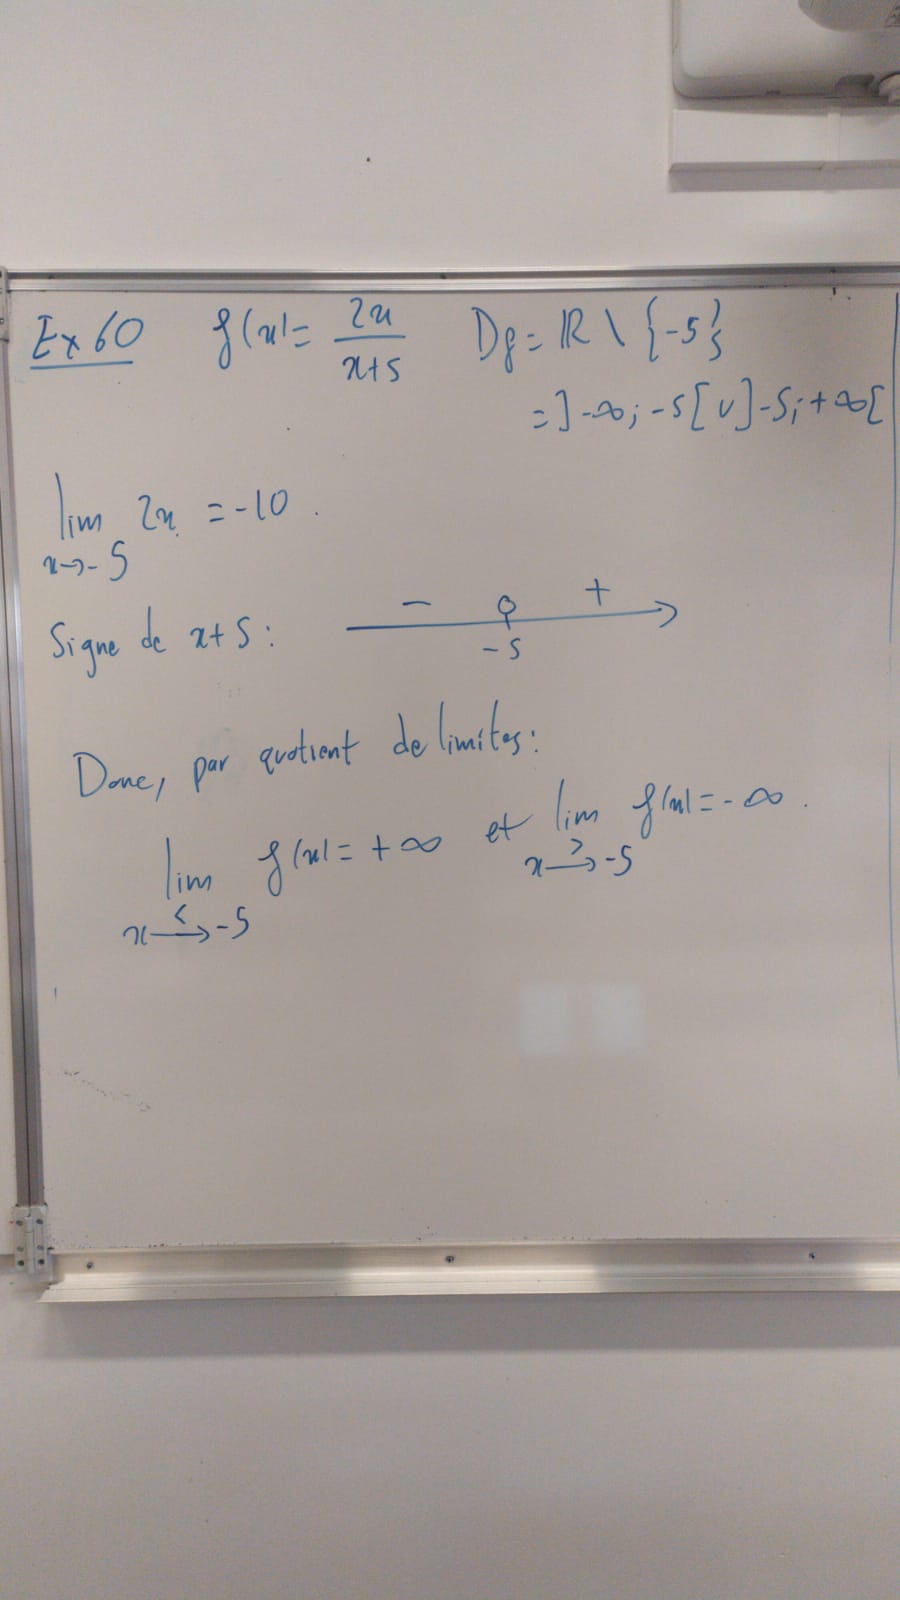 Ex 60 f(x) = 2x / x+5 Df = ℝ \ {-5}
= ]-∞; -5[ ∪ ]-5; +∞[
lim 2x = -10.
x→-5
Signe de x+5: - 0 +
-5
Donc, par quotient de limites:
lim f(x) = +∞ et lim f(x) = -∞.
x <→ -5 x >→ -5